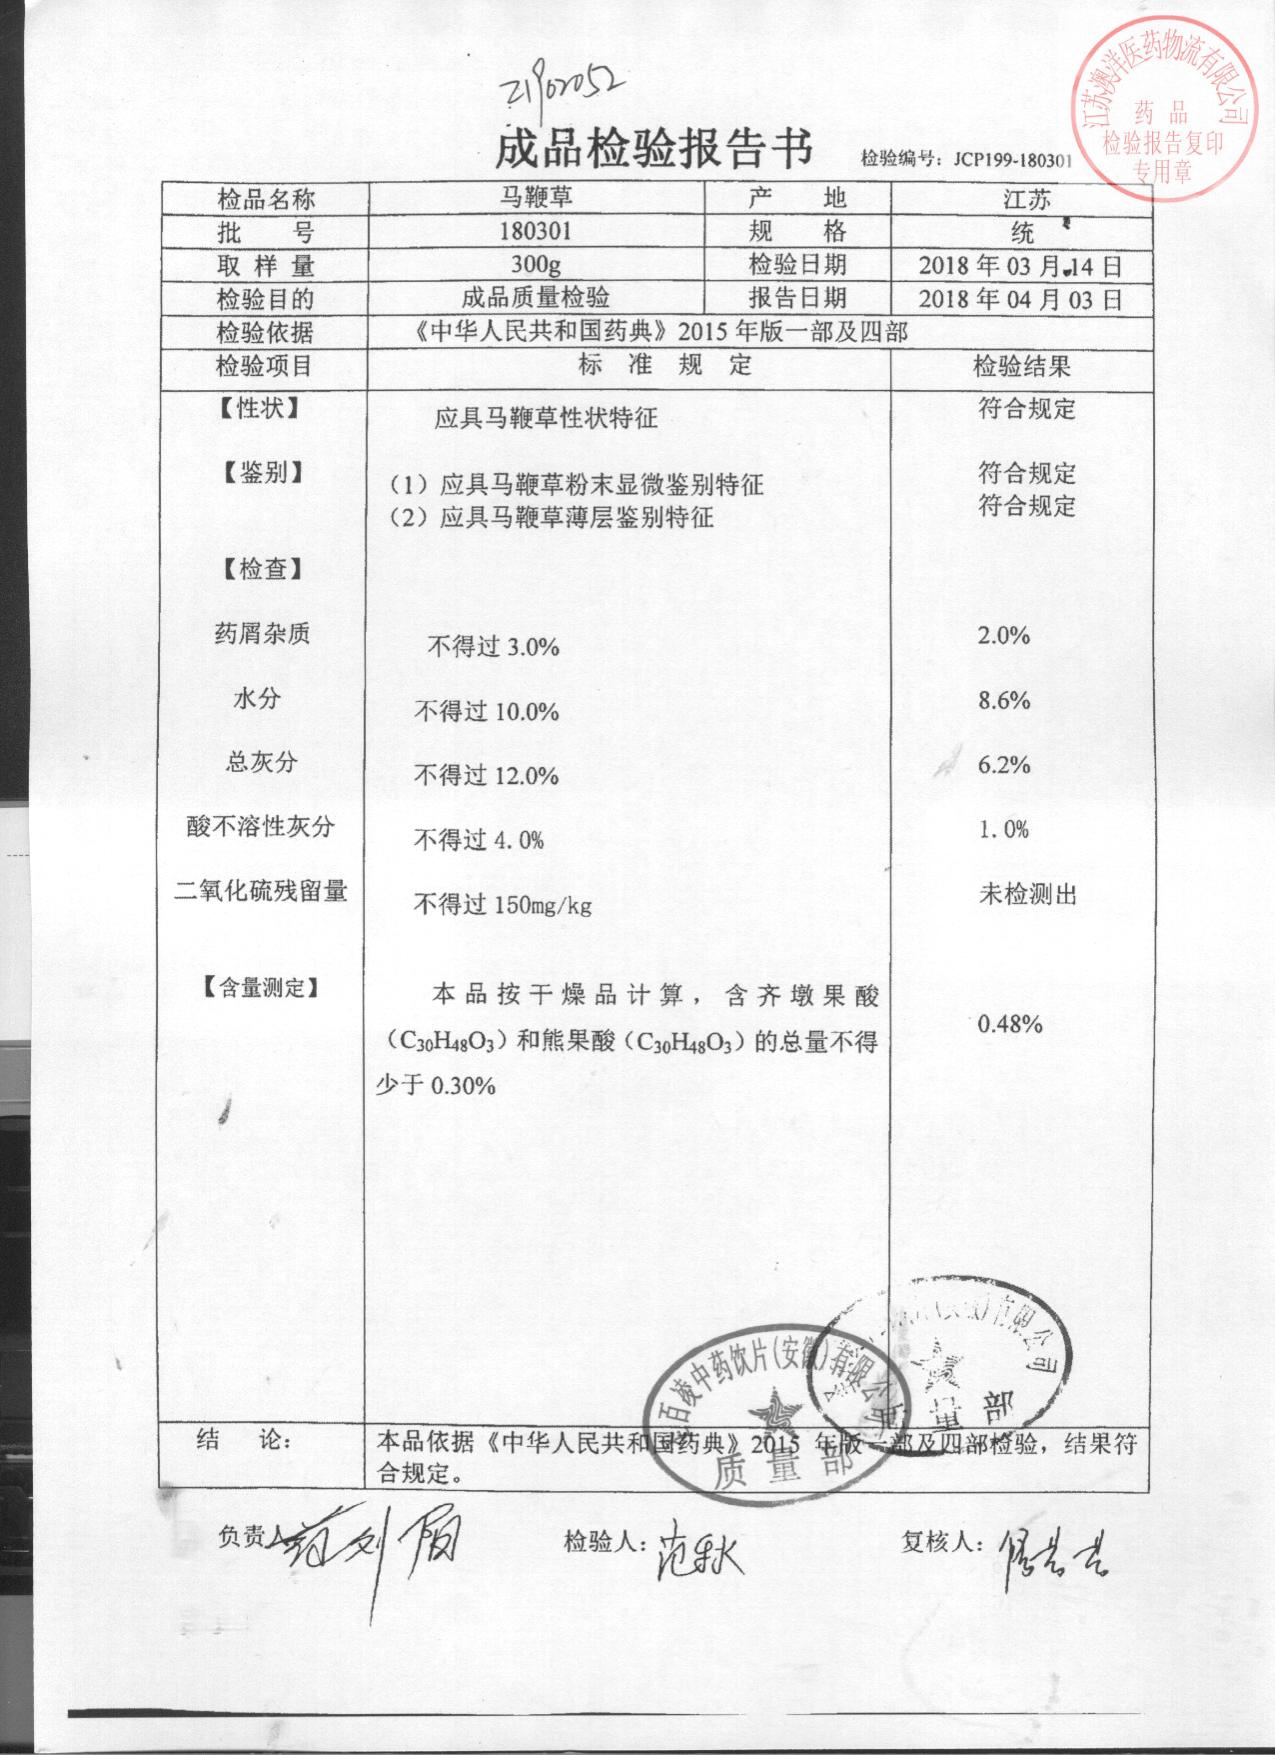 Z1902052
江苏澳洋医药物流有限公司
药品
检验报告复印
专用章
成品检验报告书
检验编号：JCP199-180301
检品名称 马鞭草 产 地 江苏
批 号 180301 规 格 统
取 样 量 300g 检验日期 2018 年 03 月 14 日
检验目的 成品质量检验 报告日期 2018 年 04 月 03 日
检验依据 《中华人民共和国药典》2015 年版一部及四部
检验项目 标 准 规 定 检验结果
【性状】 应具马鞭草性状特征 符合规定
【鉴别】 （1）应具马鞭草粉末显微鉴别特征 符合规定
（2）应具马鞭草薄层鉴别特征 符合规定
【检查】
药屑杂质 不得过 3.0% 2.0%
水分 不得过 10.0% 8.6%
总灰分 不得过 12.0% 6.2%
酸不溶性灰分 不得过 4.0% 1.0%
二氧化硫残留量 不得过 150mg/kg 未检测出
【含量测定】 本品按干燥品计算，含齐墩果酸
（C30H48O3）和熊果酸（C30H48O3）的总量不得 0.48%
少于 0.30%
百凌中药饮片(安徽)有限公司
质量部
有限公司
量部
结 论： 本品依据《中华人民共和国药典》2015 年版一部及四部检验，结果符
合规定。
负责人 检验人：范秋 复核人：